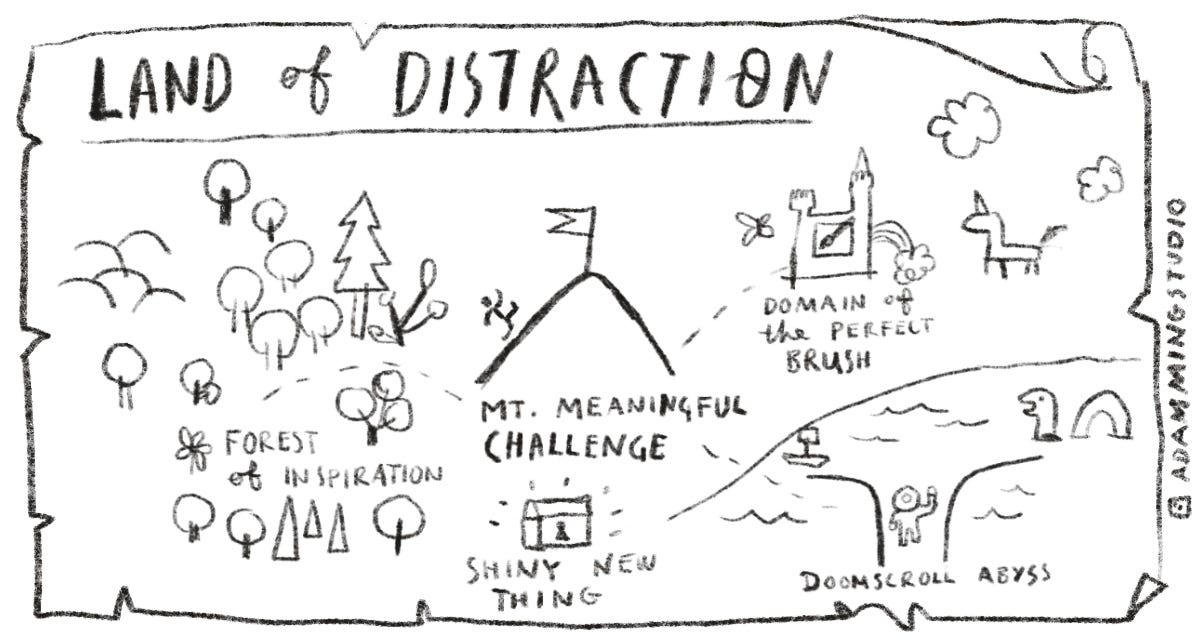 LAND of DISTRACTION
DOMAIN of
the PERFECT
BRUSH
MT. MEANINGFUL
CHALLENGE
FOREST
of INSPIRATION
SHINY NEW
THING
DOOMSCROLL ABYSS
ADAMMINGSTUDIO